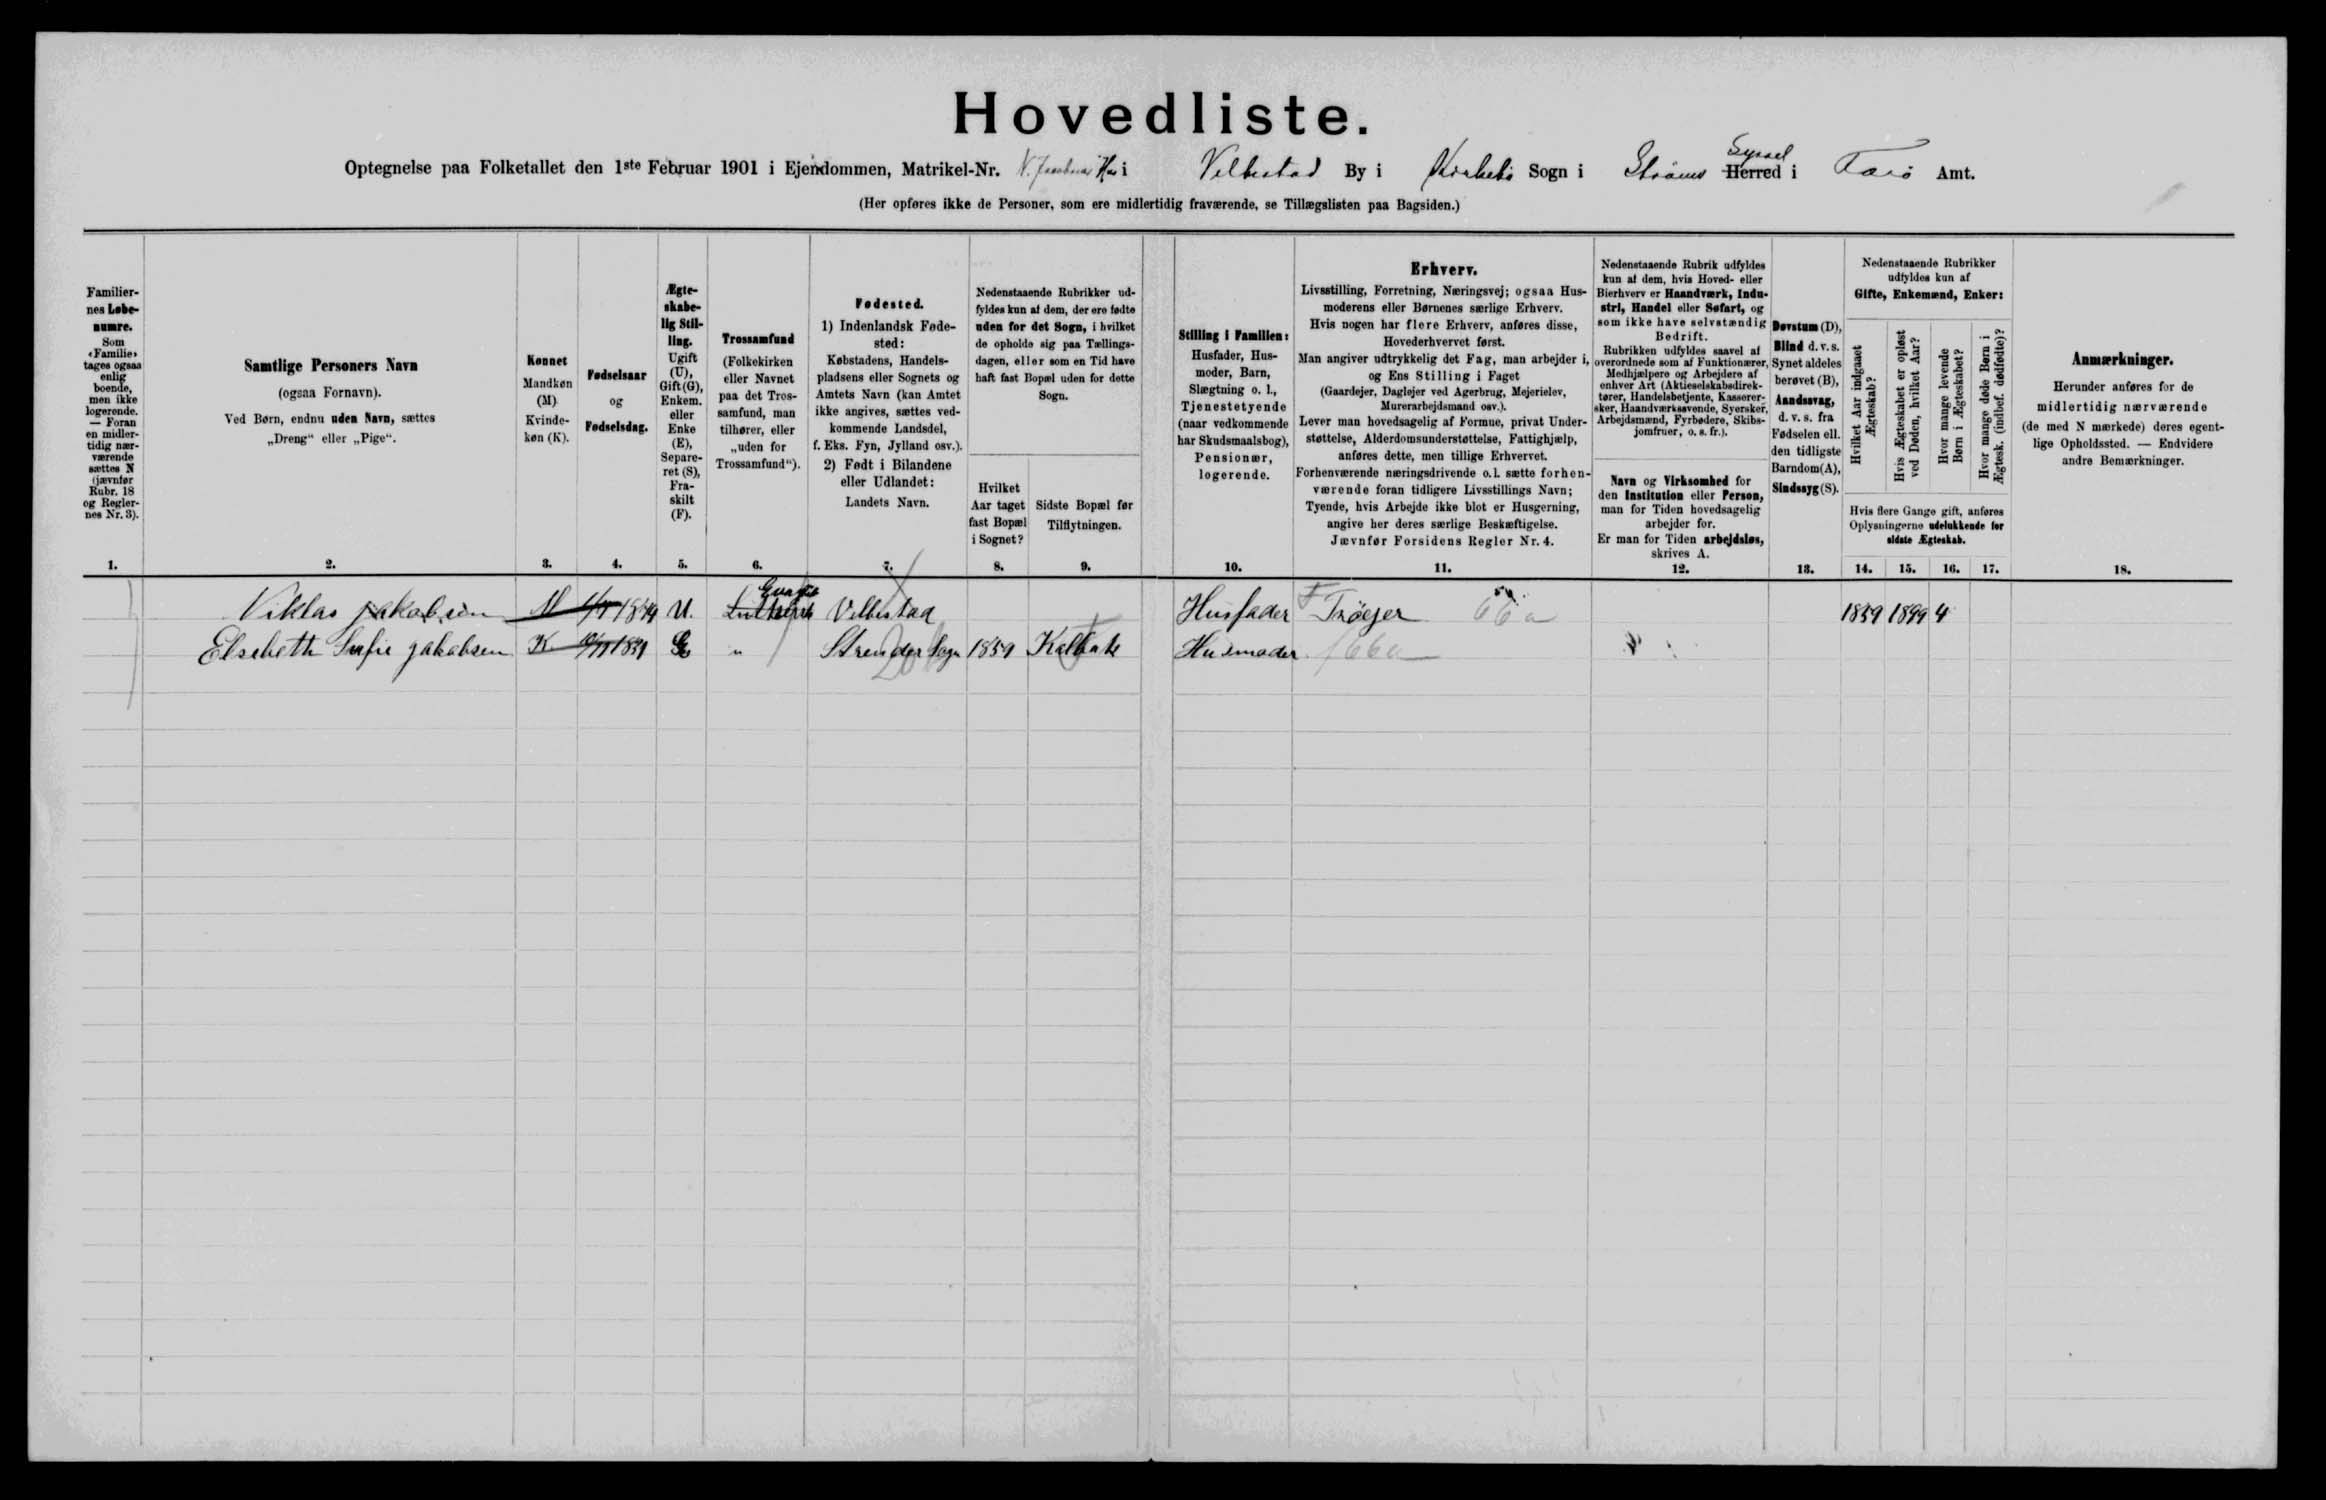 Hovedliste.
Optegnelse paa Folketallet den 1ste Februar 1901 i Ejendommen, Matrikel-Nr. N. Jacobsens Hus i Velbestad By i Kirkebø Sogn i Strømø Syssel Herred i Færø Amt.
(Her opføres ikke de Personer, som ere midlertidig fraværende, se Tillægslisten paa Bagsiden.)
Familier-
nes Løbe-
numre.
Som
«Familie»
tages ogsaa
enlig
boende,
men ikke
logerende.
— Foran
en midler-
tidig nær-
værende
sættes N
(jævnfør
Rubr. 18
og Regler-
nes Nr. 3).
Samtlige Personers Navn
(ogsaa Fornavn).
Ved Børn, endnu uden Navn, sættes
„Dreng“ eller „Pige“.
Kønnet
Mandkøn
(M)
Kvinde-
køn (K).
Fødselsaar
og
Fødselsdag.
Ægte-
skabe-
lig Stil-
ling.
Ugift
(U),
Gift (G),
Enkem.
eller
Enke
(E),
Separe-
ret (S),
Fra-
skilt
(F).
Trossamfund
(Folkekirken
eller Navnet
paa det Tros-
samfund, man
tilhører, eller
„uden for
Trossamfund“).
Fødested.
1) Indenlandsk Føde-
sted:
Købstadens, Handels-
pladsens eller Sognets og
Amtets Navn (kan Amtet
ikke angives, sættes ved-
kommende Landsdel,
f. Eks. Fyn, Jylland osv.).
2) Født i Bilandene
eller Udlandet:
Landets Navn.
Nedenstaaende Rubrikker ud-
fyldes kun af dem, der ere fødte
uden for det Sogn, i hvilket
de opholde sig paa Tællings-
dagen, eller som en Tid have
haft fast Bopæl uden for dette
Sogn.
Hvilket
Aar taget
fast Bopæl
i Sognet?
Sidste Bopæl før
Tilflytningen.
Stilling i Familien:
Husfader, Hus-
moder, Barn,
Slægtning o. l.,
Tjenestetyende
(naar vedkommende
har Skudsmaalsbog),
Pensionær,
logerende.
Erhverv.
Livsstilling, Forretning, Næringsvej; ogsaa Hus-
moderens eller Børnenes særlige Erhverv.
Hvis nogen har flere Erhverv, anføres disse,
Hovederhvervet først.
Man angiver udtrykkelig det Fag, man arbejder i,
og Ens Stilling i Faget
(Gaardejer, Daglejer ved Agerbrug, Mejerielev,
Murerarbejdsmand osv.).
Lever man hovedsagelig af Formue, privat Under-
støttelse, Alderdomsunderstøttelse, Fattighjælp,
anføres dette, men tillige Erhvervet.
Forhenværende næringsdrivende o.l. sætte forhen-
værende foran tidligere Livsstillings Navn;
Tyende, hvis Arbejde ikke blot er Husgerning,
angive her deres særlige Beskæftigelse.
Jævnfør Forsidens Regler Nr. 4.
Nedenstaaende Rubrik udfyldes
kun af dem, hvis Hoved- eller
Bierhverv er Haandværk, Indu-
stri, Handel eller Søfart, og
som ikke have selvstændig
Bedrift.
Rubrikken udfyldes saavel af
overordnede som af Funktionærer,
Medhjælpere og Arbejdere af
enhver Art (Aktieselskabsdirek-
tører, Handelsbetjente, Kasserer-
sker, Haandværkssvende, Syersker,
Arbejdsmænd, Fyrbødere, Skibs-
jomfruer, o. s. fr.).
Navn og Virksomhed for
den Institution eller Person,
man for Tiden hovedsagelig
arbejder for.
Er man for Tiden arbejdsløs,
skrives A.
Døvstum (D),
Blind d. v. s.
Synet aldeles
berøvet (B),
Aandssvag,
d. v. s. fra
Fødselen ell.
den tidligste
Barndom (A),
Sindssyg (S).
Nedenstaaende Rubrikker
udfyldes kun af
Gifte, Enkemænd, Enker:
Hvilket Aar indgaaet
Ægteskab?
Hvis Ægteskabet er opløst
ved Døden, hvilket Aar?
Hvor mange levende
Børn i Ægteskabet?
Hvor mange døde Børn i
Ægtesk. (indbef. dødfødte)?
Hvis flere Gange gift, anføres
Oplysningerne udelukkende for
sidste Ægteskab.
Anmærkninger.
Herunder anføres for de
midlertidig nærværende
(de med N mærkede) deres egent-
lige Opholdssted. — Endvidere
andre Bemærkninger.
1. 2. 3. 4. 5. 6. 7. 8. 9. 10. 11. 12. 13. 14. 15. 16. 17. 18.
Niklas Jakobsen M U. Velbestad Husfader 66 a 1859 1899 4
Elsebeth Sofie Jakobsen K " Strender Sogn 1859 Kalbak Husmoder 66 a